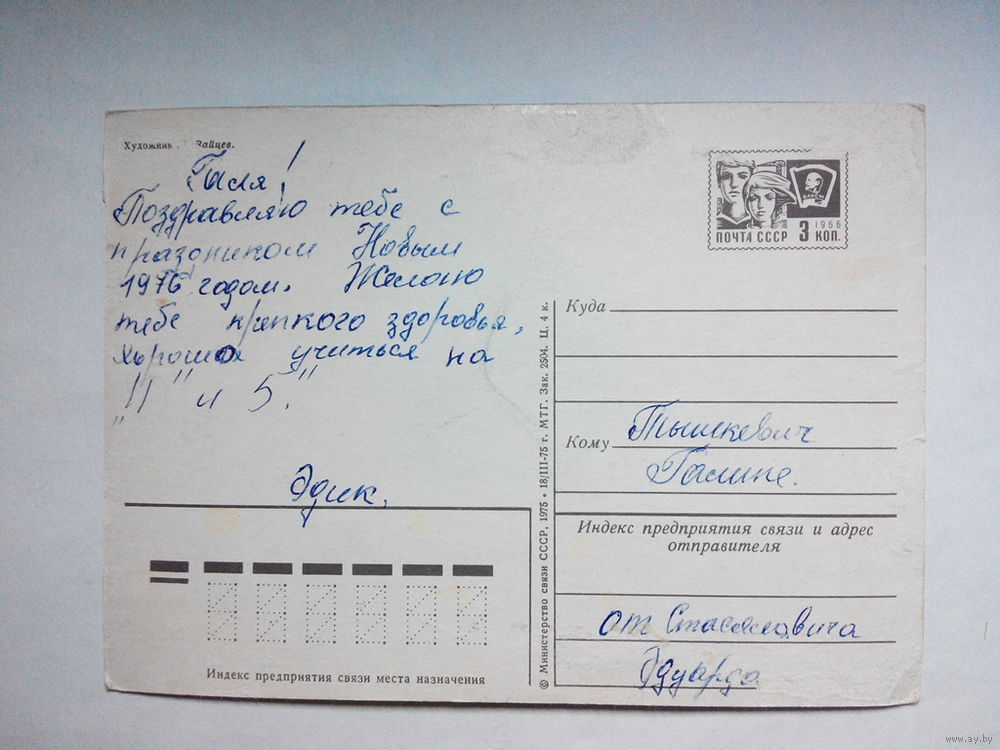 Художник Зайцев.
Галя!
Поздравляю тебе с
праздником Новым
1976 годом. Желаю
тебе крепкого здоровья,
хорошо учиться на
„4" и 5."
Эдик.
Индекс предприятия связи места назначения
© Министерство связи СССР, 1975 • 18/III-75 г. МТГ. Зак. 2504. Ц. 4 к.
ВЛКСМ
1966
ПОЧТА СССР 3 КОП.
Куда
Кому Тышкевич
Галине.
Индекс предприятия связи и адрес
отправителя
от
Эдуарда
www.ay.by